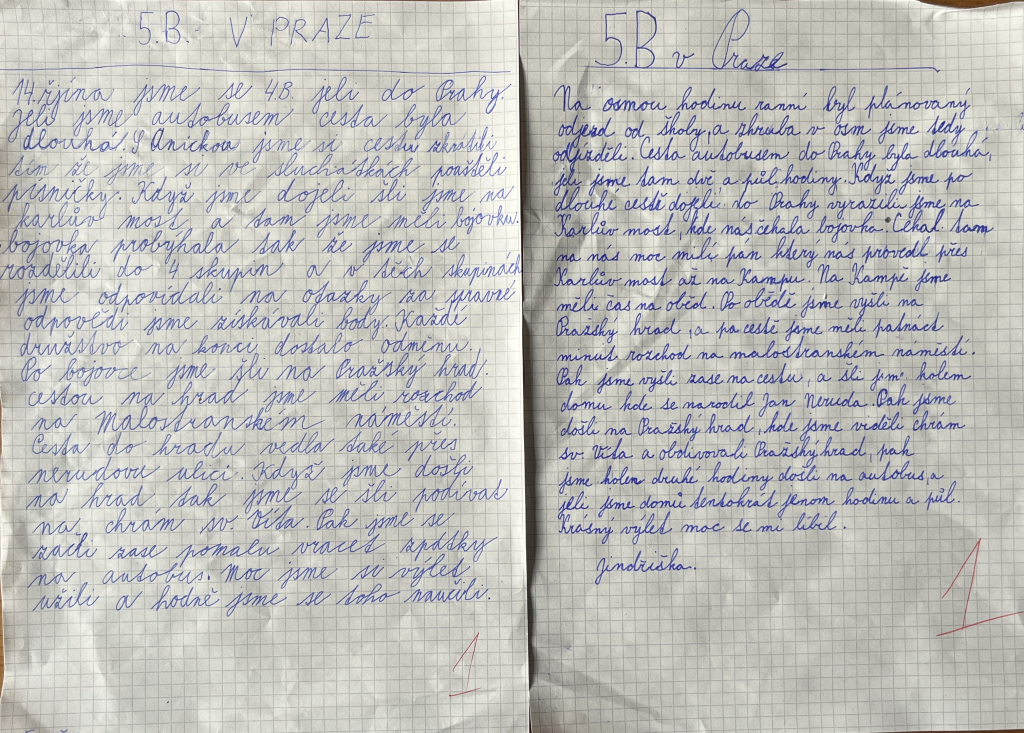 5.B. V PRAZE
14. října jsme se 4.B. jeli do Prahy.
Jeli jsme autobusem cesta byla
dlouhá. S Aničkou jsme si cestu zkrátili
tím že jsme si ve sluchátkách pouštěli
písničky. Když jsme dojeli šli jsme na
karlův most a tam jsme měli bojovku.
bojovka probýhala tak že jsme se
rozdělili do 4 skupin a v těch skupinách
jsme odpovídali na otázky za spravné
odpovědi jsme získávali body. Každé
družstvo na konci dostalo odměnu.
Po bojovce jsme šli na Pražský hrad.
cestou na hrad jsme měli rozchod
na Malostranském náměstí.
Cesta do hradu vedla také přes
nerudovu ulici. Když jsme došli
na hrad tak jsme se šli podívat
na chrám sv Víta. Pak jsme se
začli zase pomalu vracet zpátky
na autobus. Moc jsme si výlet
užili a hodně jsme se toho naučili.
1
5.B v Praze
Na osmou hodinu ranní byl plánovaný
odjezd od školy, a zhruba v osm jsme tedy
odjížděli. Cesta autobusem do Prahy byla dlouhá,
jeli jsme tam dvě a půl hodiny. Když jsme po
dlouhé cestě dojeli do Prahy vyrazili jsme na
Karlův most, kde nás čekala bojovka. Čekal tam
na nás moc milí pán který nás provedl přes
Karlův most až na Kampu. Na Kampě jsme
měli čas na oběd. Po obědě jsme vyšli na
Pražský hrad, a po cestě jsme měli patnáct
minut rozchod na malostranském náměstí.
Pak jsme vyšli zase na cestu, a šli jsme kolem
domu kde se narodil Jan Neruda. Pak jsme
došli na Pražský hrad, kde jsme viděli chrám
sv Víta a obdivovali Pražský hrad, pak
jsme kolen druhé hodiny došli na autobus, a
jeli jsme domů tentokrát jenom hodinu a půl.
Krásný výlet moc se mi líbil.
Jindřiška.
1